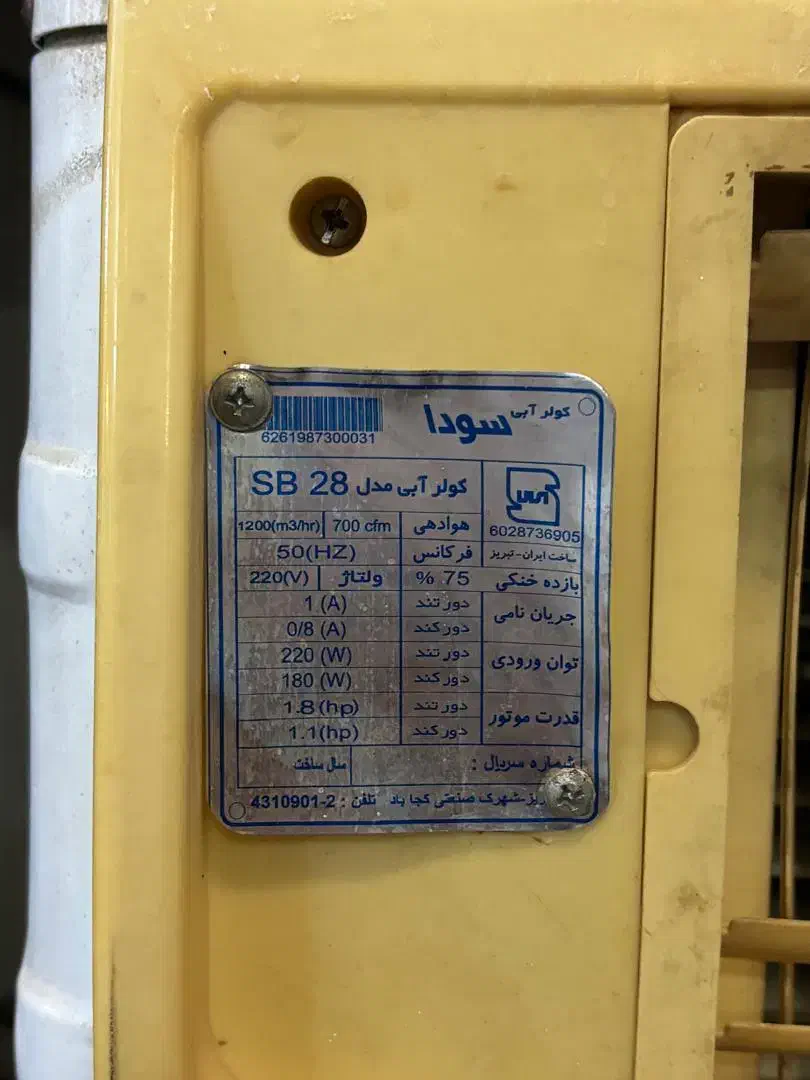 کولر آبی سودا
6261987300031
کولر آبی مدل SB 28
6028736905
ساخت ایران-تبریز
هوادهی 700 cfm 1200(m3/hr)
فرکانس 50(HZ)
بازده خنکی 75 % ولتاژ 220(V)
جریان نامی دور تند 1 (A)
دور کند 0/8 (A)
توان ورودی دور تند 220 (W)
دور کند 180 (W)
قدرت موتور دور تند 1.8(hp)
دور کند 1.1(hp)
شماره سریال : سال ساخت
شهرک صنعتی کجا باد تلفن : 2-4310901